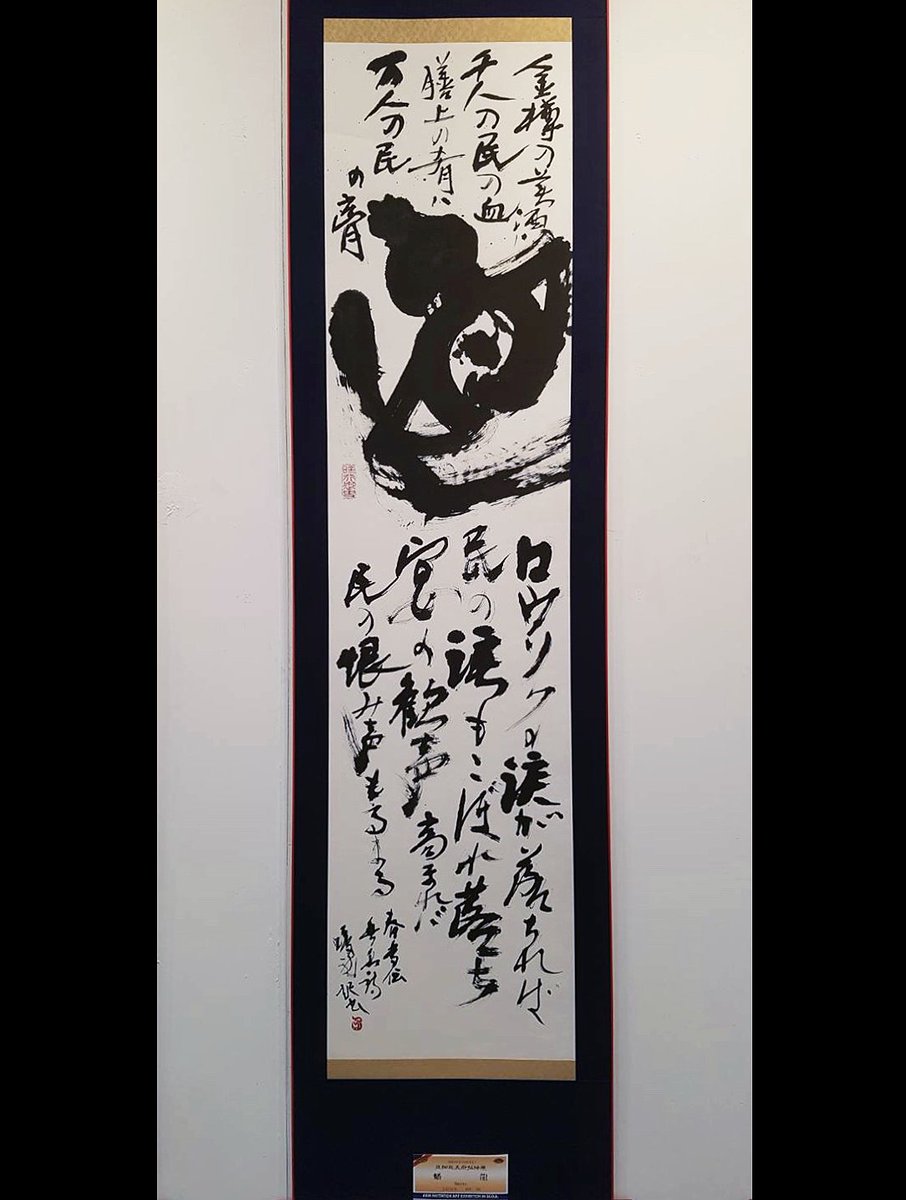 金樽の美酒
千人の民の血
膳上の肴ハ
万人の民
の膏
ロウソクの涙が落ちれば
民の涙もこぼれ落ち
宴の歓声高まれば
民の恨み声も高まる
春香伝
ASIA INVITATION ART EXHIBITION IN SEOUL